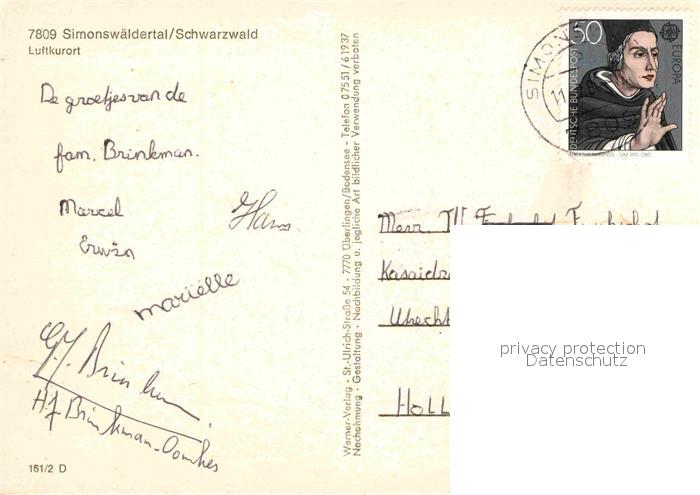 7809 Simonswäldertal/Schwarzwald
Luftkurort
De groetjes van de
fam. Brinkman.
Marcel
Hans
Erwin
mariëlle
G.J. Brinkman
H.J. Brinkman-Oomkes
161/2 D
Werner-Verlag - St.-Ulrich-Straße 54 - 7770 Überlingen/Bodensee - Telefon 07551/61937
Nachahmung · Gestaltung · Nachbildung u. jegliche Art bildlicher Verwendung verboten
SIMON
50
DEUTSCHE BUNDESPOST
EUROPA
ALBERTUS MAGNUS · UM 1193-1280
Utrecht
HOLL
privacy protection
Datenschutz